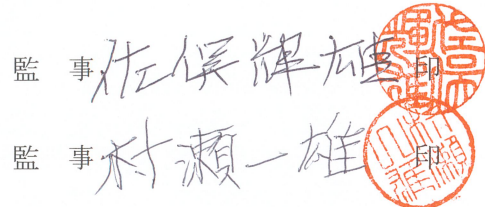 監事 佐保輝雄 印
監事 村瀬一雄 印